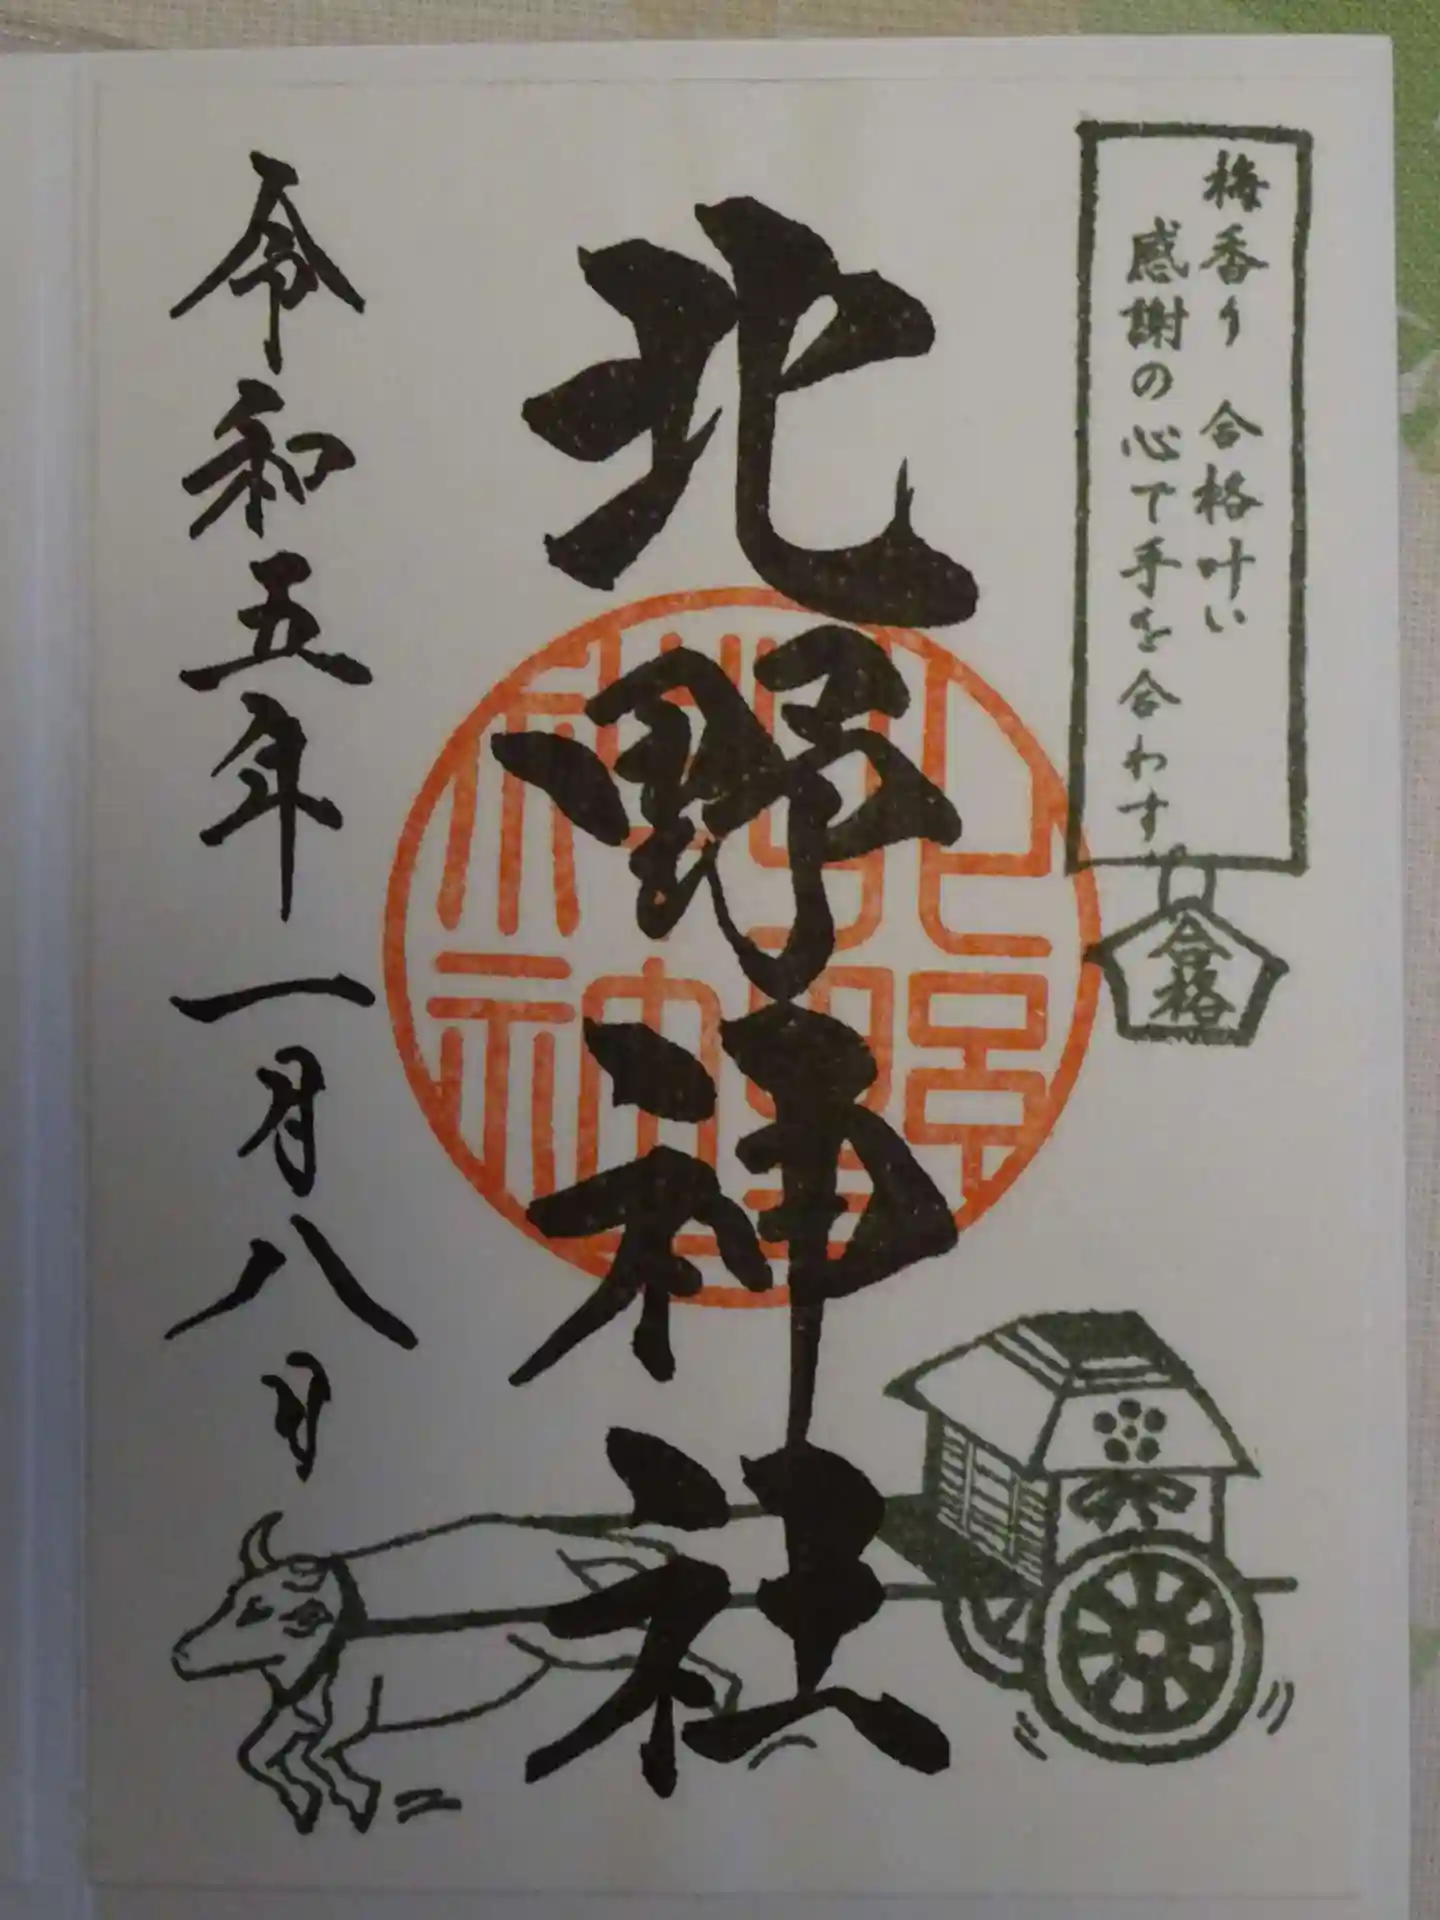 梅香り 合格叶い
感謝の心で手を合わす
合格
北野神社
令和五年一月八日